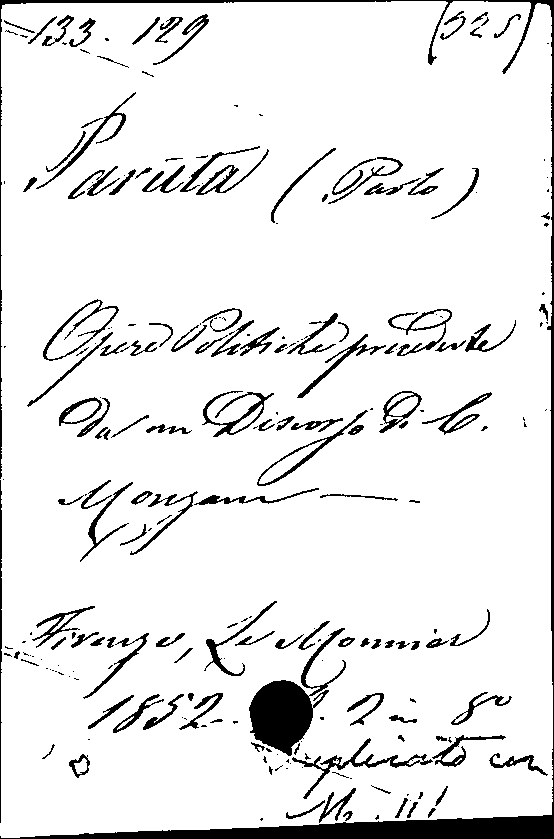 133. 129 (325)
Paruta (Paolo)
Opere Politiche precedute
da un Discorso di C.
Monzani —.
Firenze, Le Monnier
1852. 2 in 8º
Duplicato con
M. 111